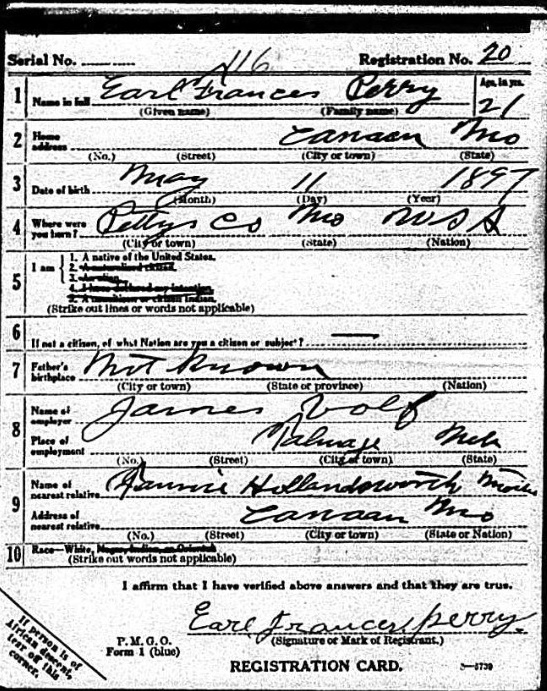 Serial No. 416 Registration No. 20
1 Name in full Earl Frances Perry Age, in yrs. 21
(Given name) (Family name)
2 Home address Canaan Mo
(No.) (Street) (City or town) (State)
3 Date of birth May 11 1897
(Month) (Day) (Year)
4 Where were you born? Pettys Co Mo USA
(City or town) (State) (Nation)
5 I am 1. A native of the United States.
2. A naturalized citizen.
3. An alien.
4. I have declared my intention.
5. A noncitizen or citizen Indian.
(Strike out lines or words not applicable)
6 If not a citizen, of what Nation are you a citizen or subject? —
7 Father's birthplace Not Known
(City or town) (State or province) (Nation)
8 Name of employer James Wolf
Place of employment Talmage Neb
(No.) (Street) (City or town) (State)
9 Name of nearest relative Fannie Hollandsworth
Address of nearest relative Canaan Mo
(No.) (Street) (City or town) (State or Nation)
10 Race—White, Negro, Indian, or Oriental
(Strike out words not applicable)
I affirm that I have verified above answers and that they are true.
Earl Frances Perry
P. M. G. O. (Signature or Mark of Registrant.)
Form 1 (blue)
REGISTRATION CARD.
If person is of
African descent,
tear off this
corner.